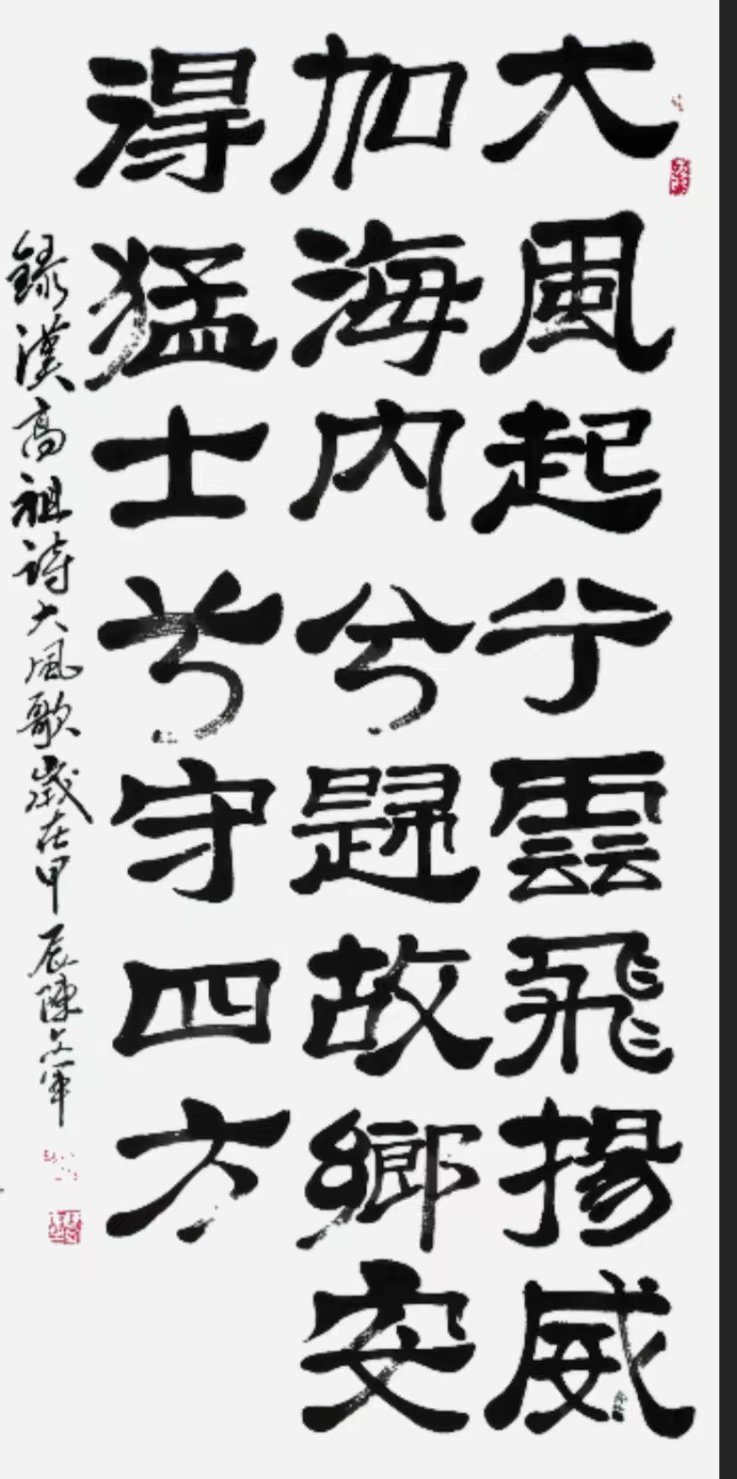 大風起兮雲飛揚威
加海内兮歸故鄉安
得猛士兮守四方
録漢高祖詩大風歌歲在甲辰陳軍